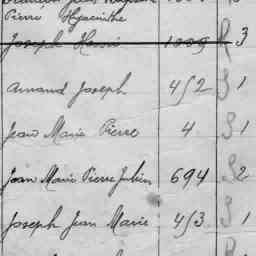 Pierre Hyacinthe
Joseph Henri 1009 R 3
Amand Joseph 452 S 1
Jean Marie Pierre 4 S 1
Jean Marie Pierre Julien 694 S 2
Joseph Jean Marie 453 S 1